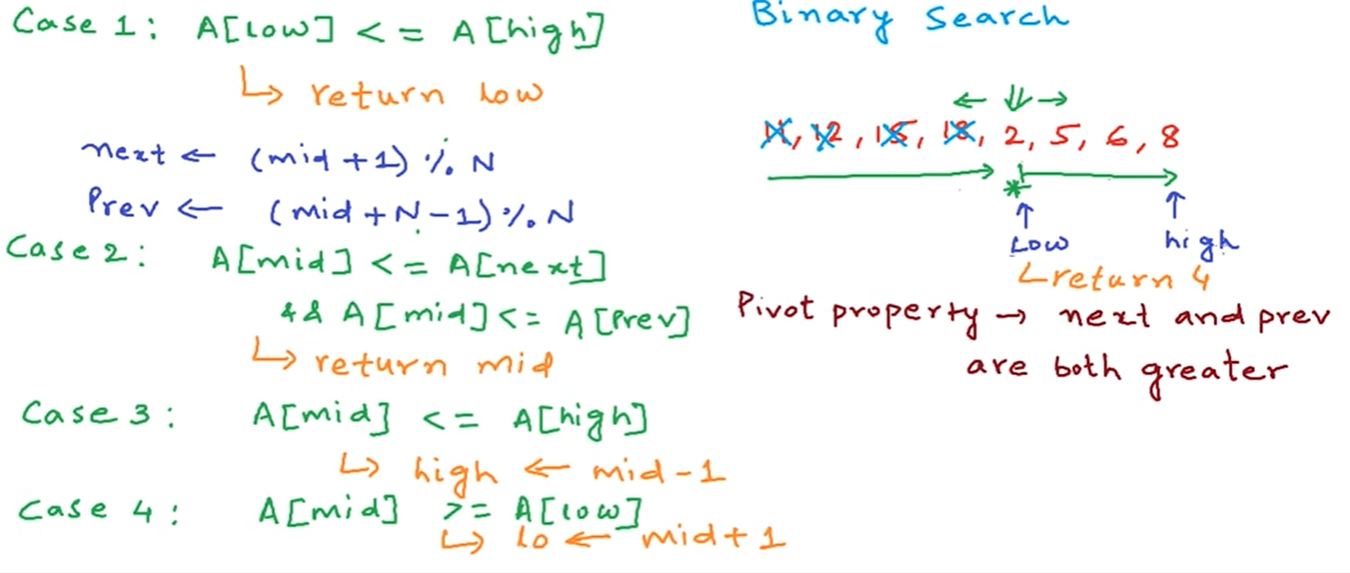 Case 1: A[low] <= A[high]
↳ return low
next ← (mid+1) % N
Prev ← (mid+N-1) % N
Case 2: A[mid] <= A[next]
&& A[mid] <= A[Prev]
↳ return mid
Case 3: A[mid] <= A[high]
↳ high ← mid-1
Case 4: A[mid] >= A[low]
↳ lo ← mid+1
Binary Search
← ⇓ →
11, 12, 15, 18, 2, 5, 6, 8
*
↑ ↑
Low high
↳ return 4
Pivot property → next and prev
are both greater